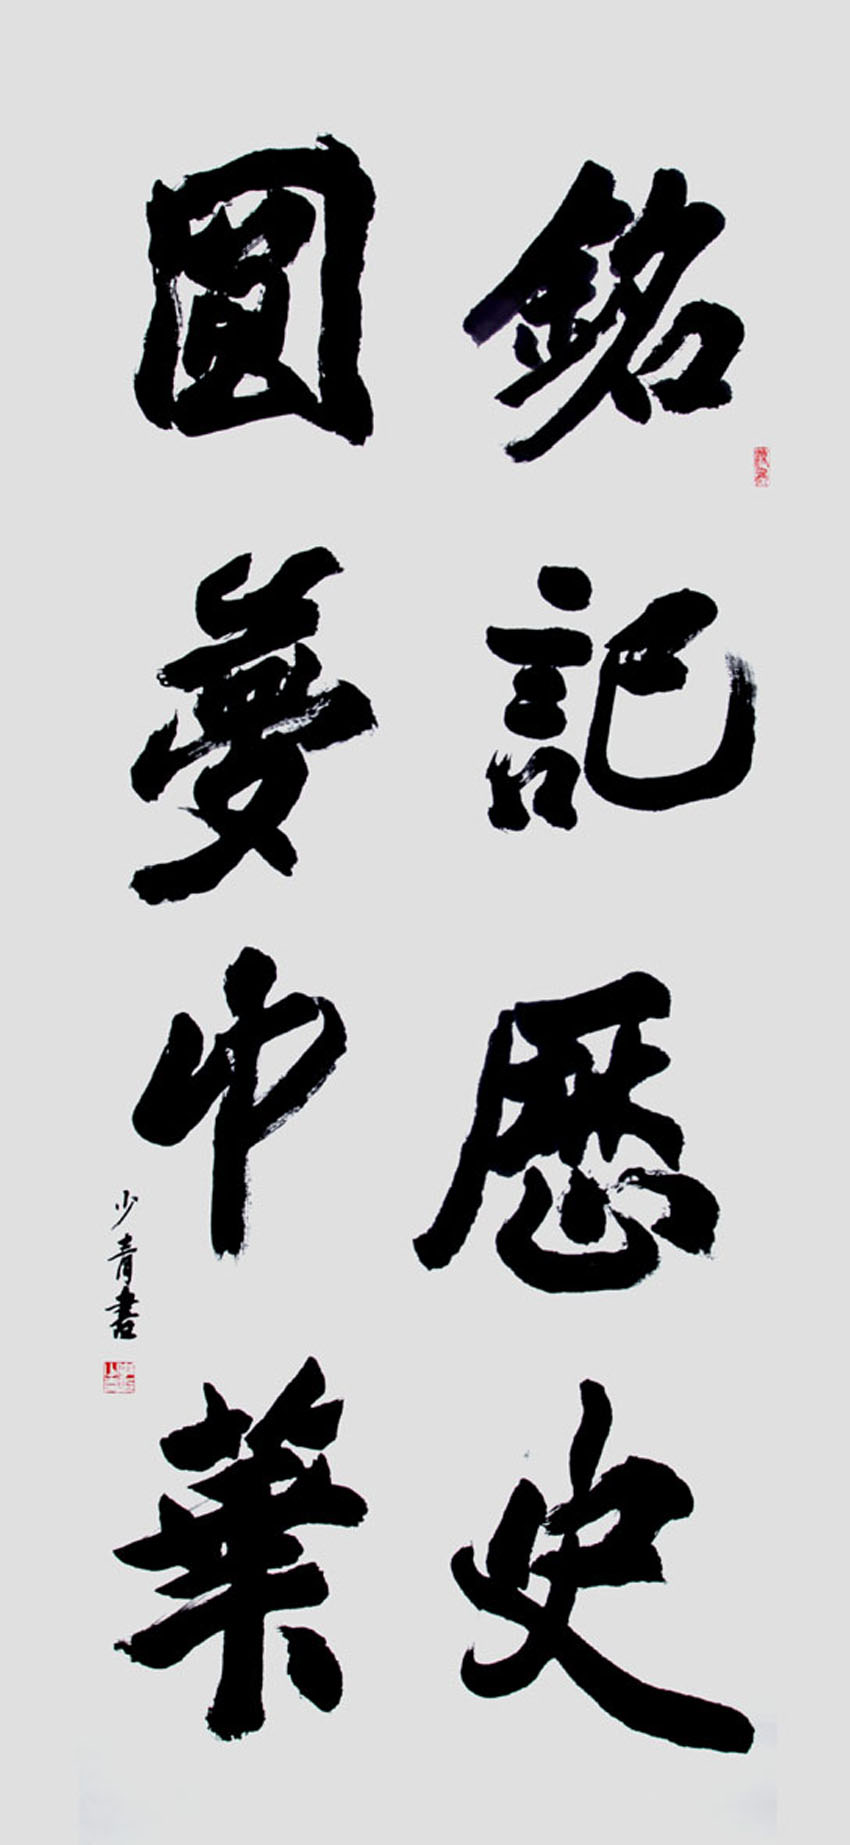 銘記歷史
圓夢中華
少青書